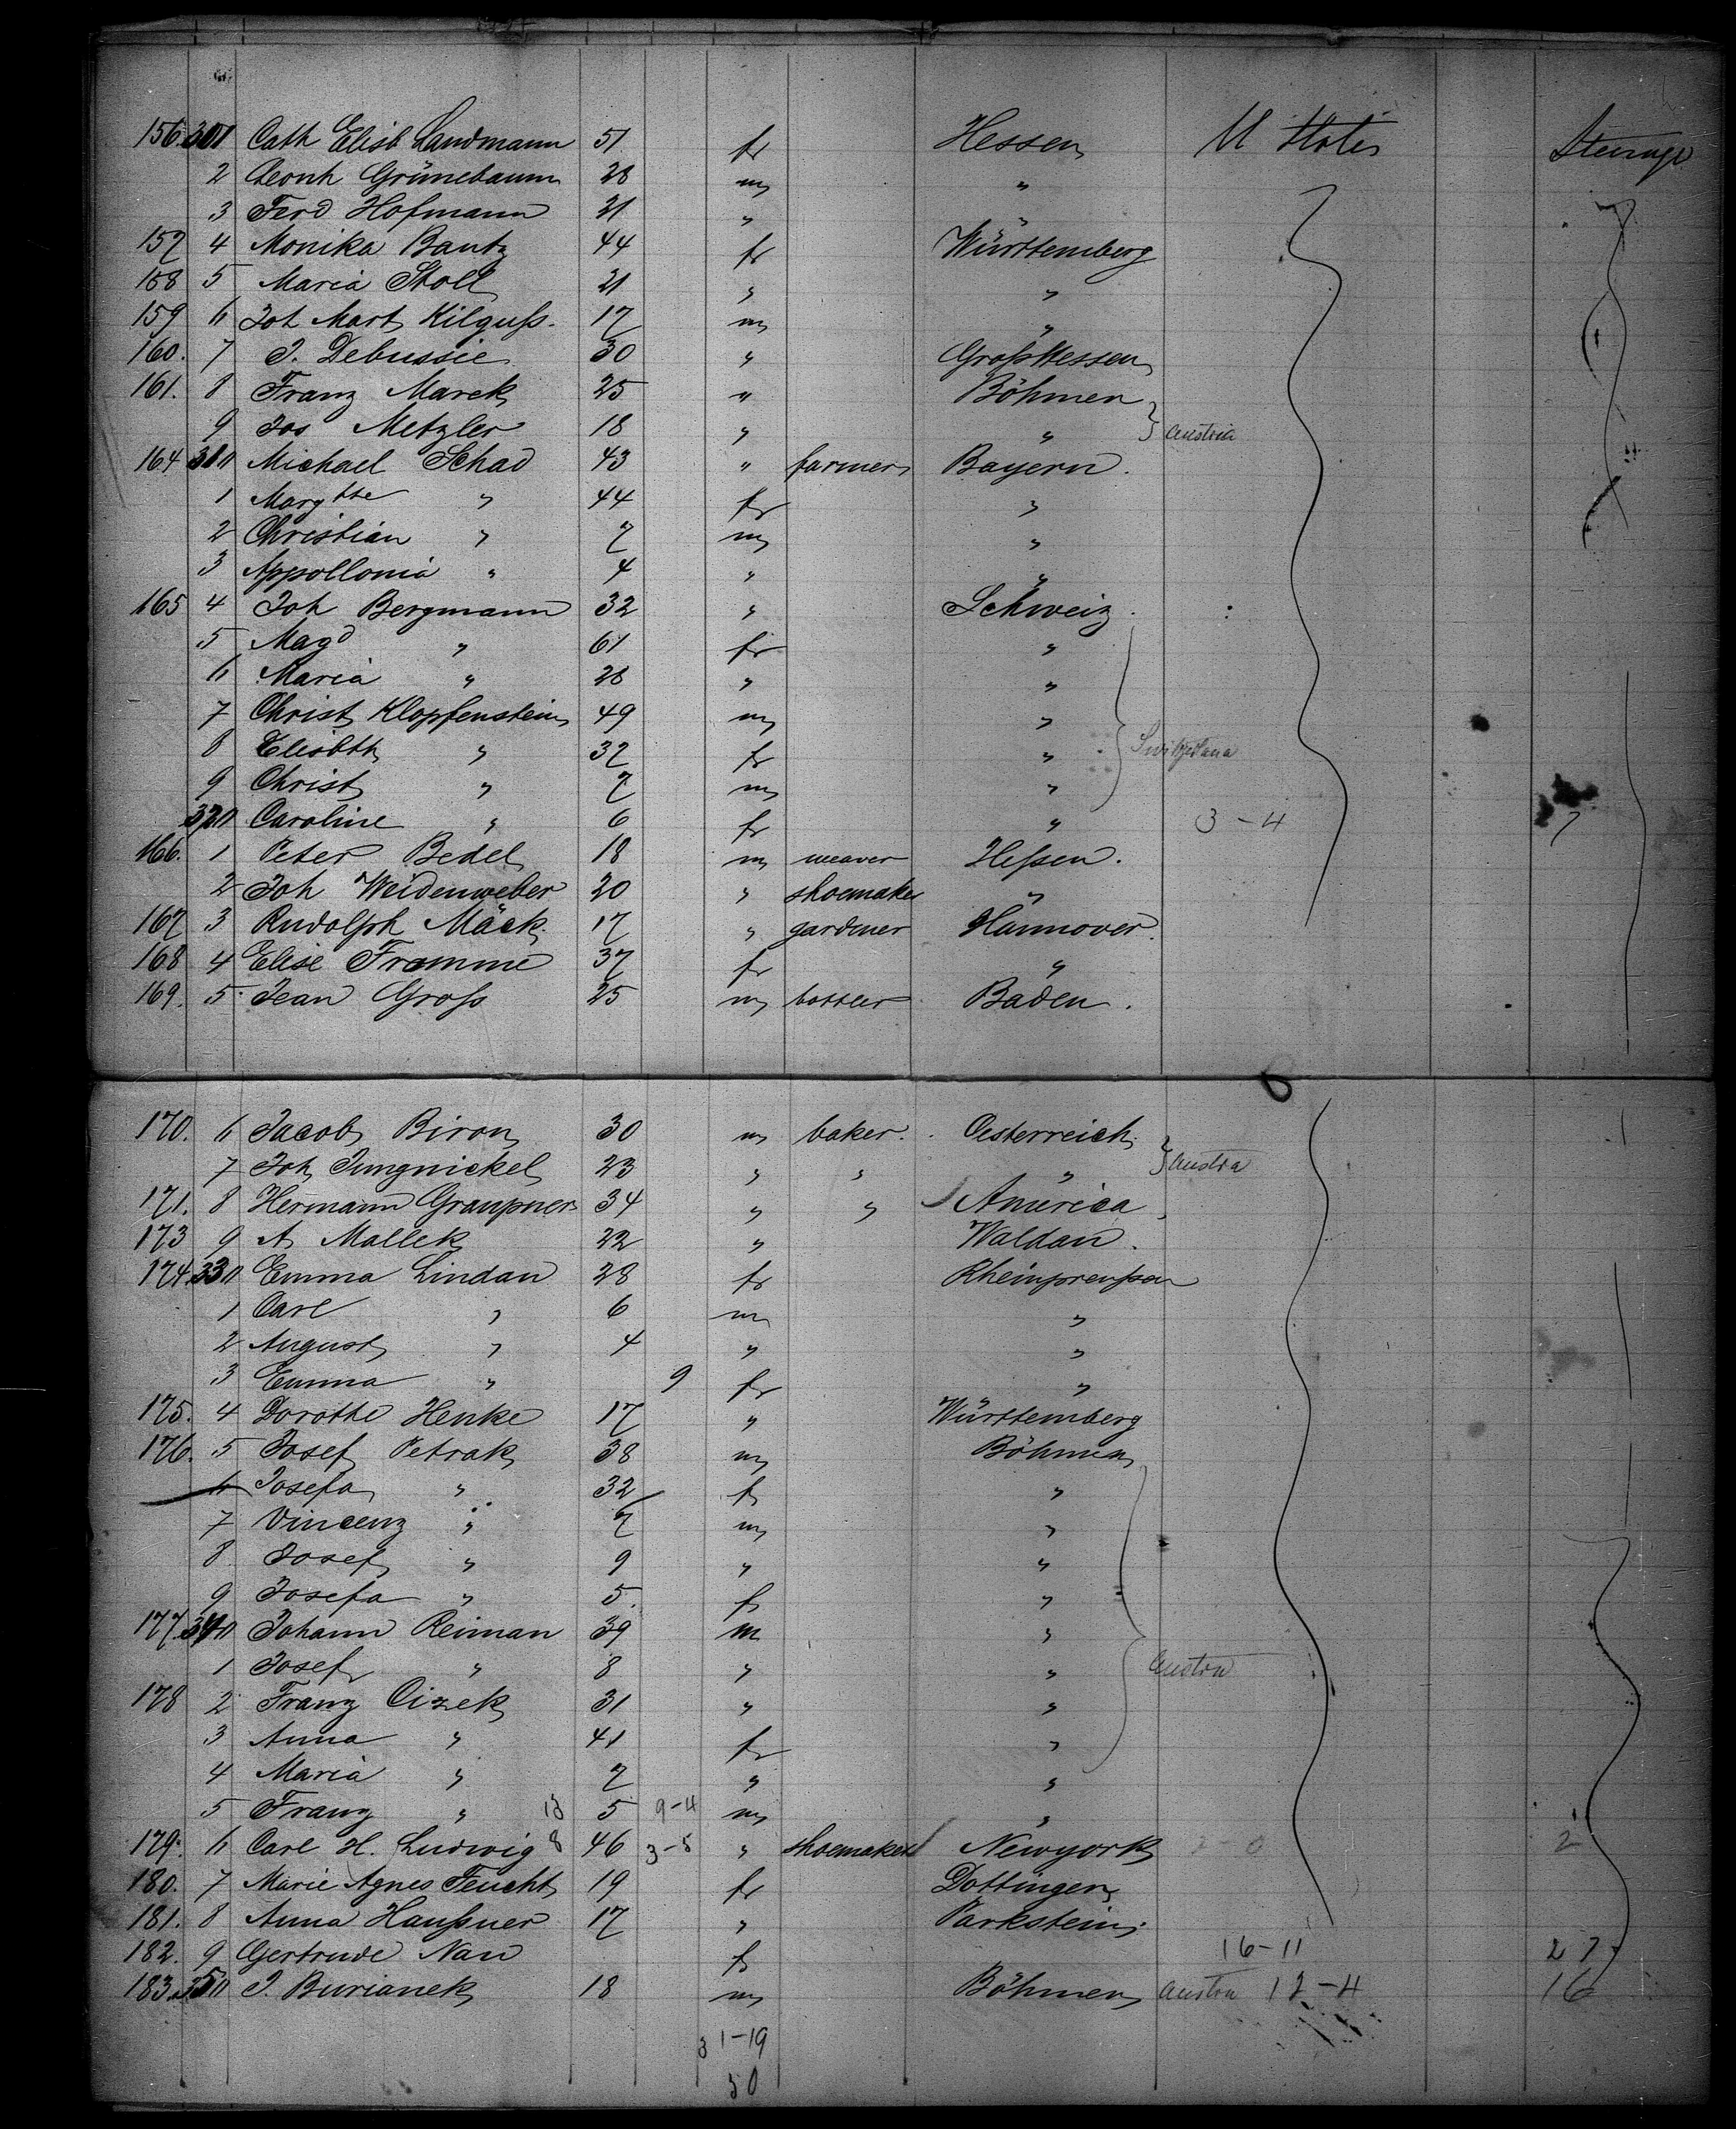 156. 301 Cath Elisb Landmann 51 fr Hessen U States Steerage
2 Leonh Grünebaum 28 m "
3 Ferd Hofmann 21 " "
157 4 Monika Bantz 44 fr Württemberg
158 5 Maria Stoll 21 " "
159 6 Joh Mart Kilguß. 17 m "
160. 7 J. Debussie 30 " Groß Hessen
161. 8 Franz Marek 25 " Böhmen
9 Jos Metzler 18 " " Austria
164 310 Michael Schad 43 " farmer Bayern.
1 Margtte " 44 fr "
2 Christian " 7 m "
3 Appollonia " 4 " "
165 4 Joh Bergmann 32 " Schweiz.
5 Magd " 61 fr "
6 Maria " 28 " "
7 Christ Klopfenstein 49 m "
8 Elisbth " 37 fr " Switzerland
9 Christ " 7 m "
320 Caroline " 6 fr " 3-4 7
166. 1 Peter Bedel 18 m weaver Heßen.
2 Joh Weidenweber 20 " shoemaker "
167 3 Rudolph Mäck 17 " gardener Hannover.
168 4 Elise Framme 37 fr "
169. 5 Jean Groß 25 m Baden.
170. 6 Jacob Biron 30 m baker. Oesterreich
7 Joh Jungnickel 23 " " " Austria
171. 8 Hermann Graupner 34 " " America
173 9 A Mallek 22 " Waldau.
174. 330 Emma Lindau 28 fr Rheinpreußen
1 Carl " 6 m "
2 August " 4 " "
3 Emma " 9 fr "
175. 4 Dorothe Henke 17 " Württemberg
176. 5 Josef Petrak 38 m Böhmen
6 Josefa " 32 f "
7 Vincenz " 7 m "
8 Josef " 9 " "
9 Josefa " 5. f "
177. 340 Johann Reiman 39 m "
1 Josef " 8 " " Austria
178 2 Franz Cizek 31 " "
3 Anna " 41 fr "
4 Maria " 7 " "
5 Franz " 13 5 9-4 m "
179. 6 Carl H. Ludwig 8 46 3-5 " shoemaker Newyork 2
180. 7 Marie Agnes Feucht 19 fr Dottingen
181. 8 Anna Haußner 17 " Parkstein.
182. 9 Gertrude Nau f 16-11 27
183. 350 J. Burianek 18 m Böhmen Austria 12-4 16
31-19
50